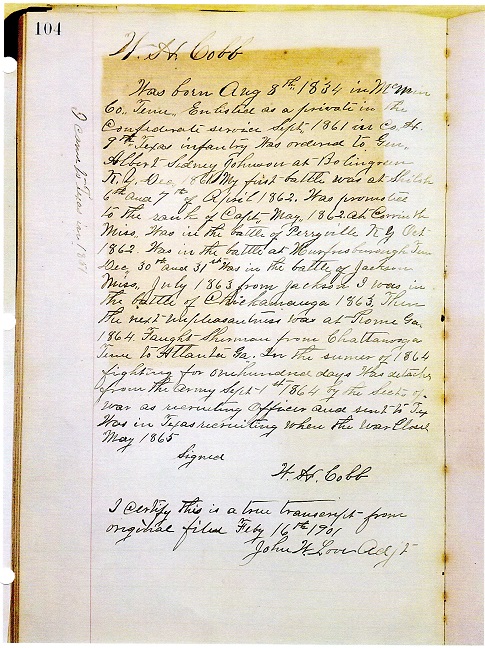 104
W. H. Cobb
Was born Aug 8th 1834 in McMinn
Co., Tenn., Enlisted as a private in the
Confederate service Sept, 1861 in Co. H.
9th Texas infantry Was ordered to Gen,
Albert Sidney Johnson at Bolingreen
K.y. Dec, My first battle was at Shiloh
6th and 7th of April 1862. Was promoted
to the rank of Capt, May, 1862 at Corinth
Miss. Was in the battle of Perryville K.y. Oct
1862. Was in the battle at Murfreesborough Tenn
Dec, 30th and 31st Was in the battle of Jackson
Miss, July 1863 from Jackson I was in
the battle of Chickamauga 1863. Then
the next unpleasantness was at Rome Ga
1864. Faught Sherman from Chattanooga
Tenn to Atlanta Ga. In the sumer of 1864
fighting for one hundred days Was detached
from the Army Sept 1st 1864 by the Sect. of
war as recruiting Officer and sent to Tex
Was in Texas recruiting when the War Closed
May 1865
Signed
W. H. Cobb
I certify this is a true transcript from
original filed Feby 16th 1901
John W. Love Adjt
I came to Texas in